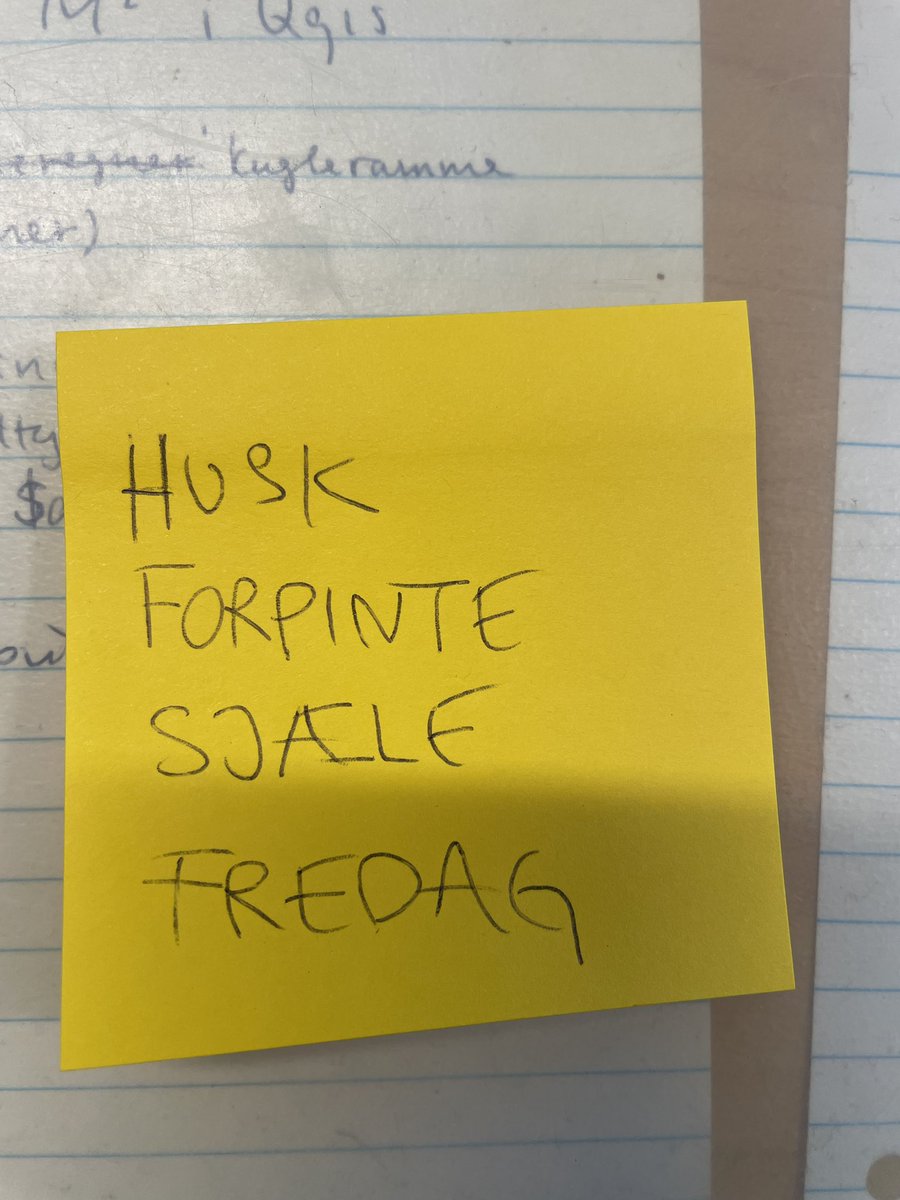 M² i Qgis
kugleramme
ner)
HUSK
FORPINTE
SJÆLE
FREDAG